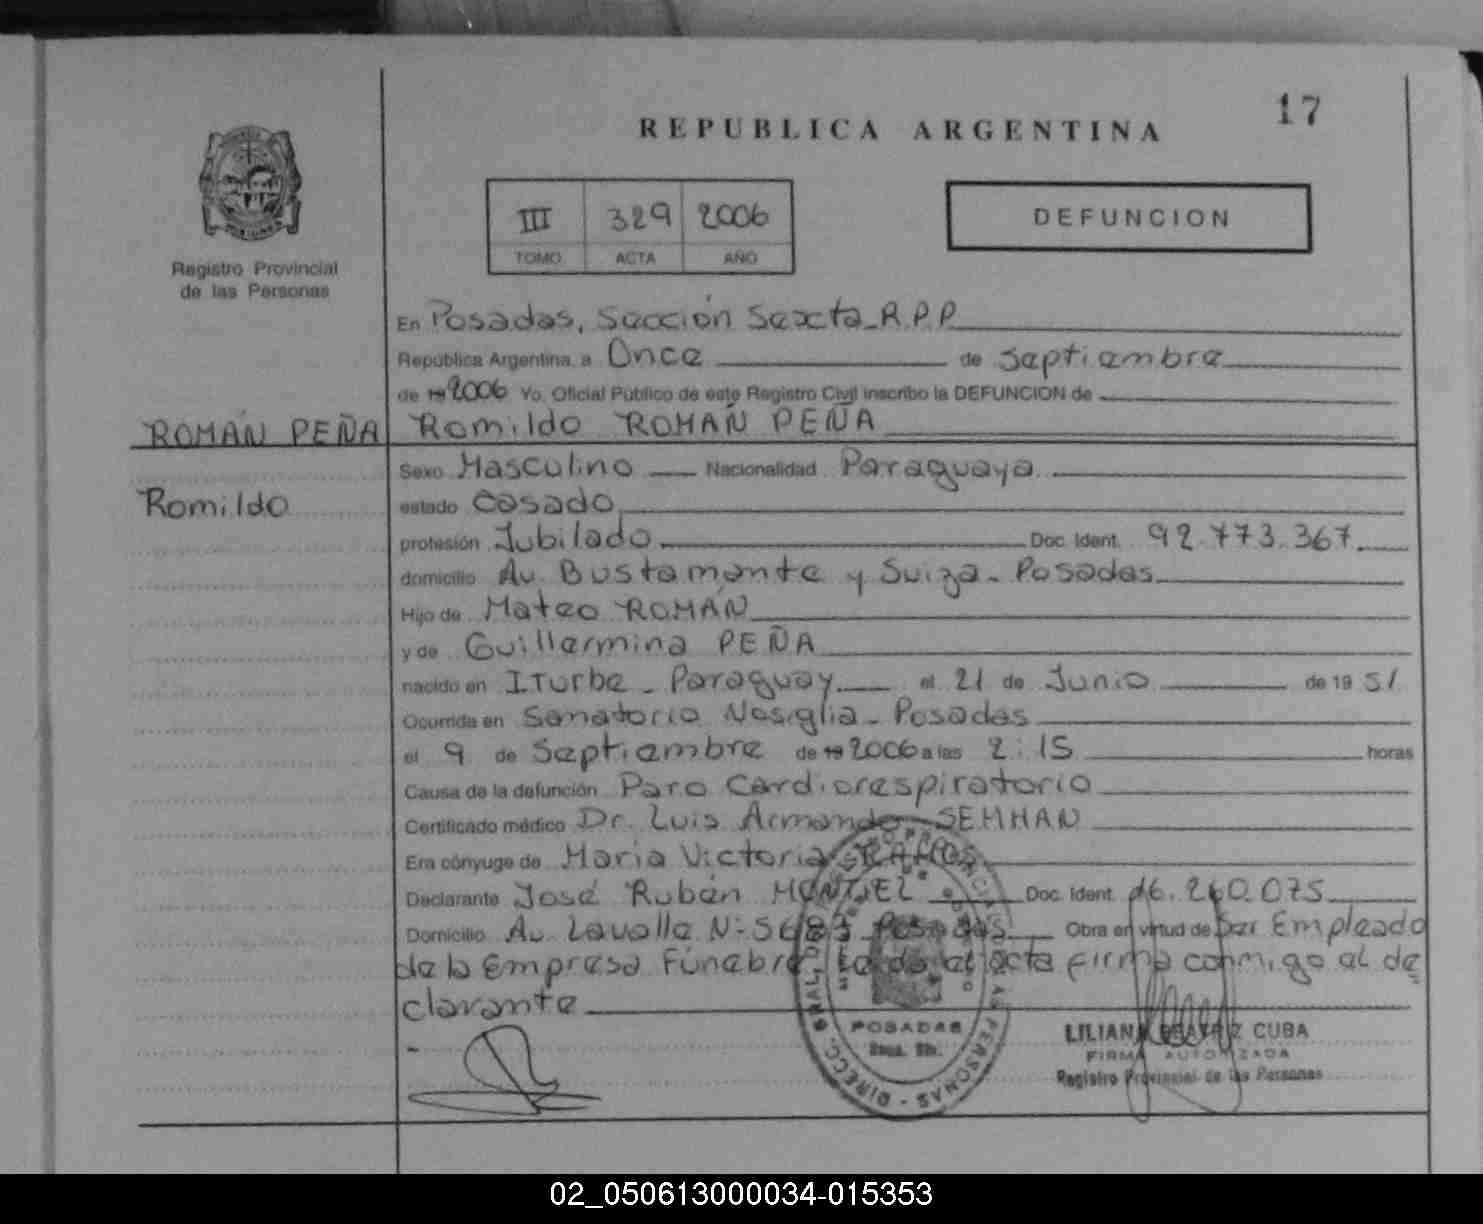 17
REPUBLICA ARGENTINA
III 329 2006
TOMO ACTA AÑO
DEFUNCION
Registro Provincial
de las Personas
En Posadas, Sección Sexta R.P.P.
República Argentina, a Once de Septiembre
de 19 2006 Yo, Oficial Público de este Registro Civil inscribo la DEFUNCION de
ROMÁN PEÑA
Romildo ROMÁN PEÑA
Romildo
Sexo Masculino Nacionalidad Paraguaya
estado Casado
profesión Jubilado Doc. Ident. 92.773.367
domicilio Av. Bustamante y Suiza - Posadas
Hijo de Mateo ROMÁN
y de Guillermina PEÑA
nacido en ITurbe - Paraguay el 21 de Junio de 1951
Ocurrida en Sanatorio Nosiglia - Posadas
el 9 de Septiembre de 19 2006 a las 2:15 horas
Causa de la defunción Paro Cardiorespiratorio
Certificado médico Dr. Luis Armando SEMHAN
Era cónyuge de María Victoria
Declarante José Rubén MONTIEL Doc. Ident. 16.260.075
Domicilio Av. Lavalle N: Posadas Obra en virtud de Ser Empleado
de la Empresa Fúnebre Leída el acta firma conmigo el de
clarante
POSADAS
LILIANA BEATRIZ CUBA
FIRMA AUTORIZADA
Registro Provincial de las Personas
02_050613000034-015353